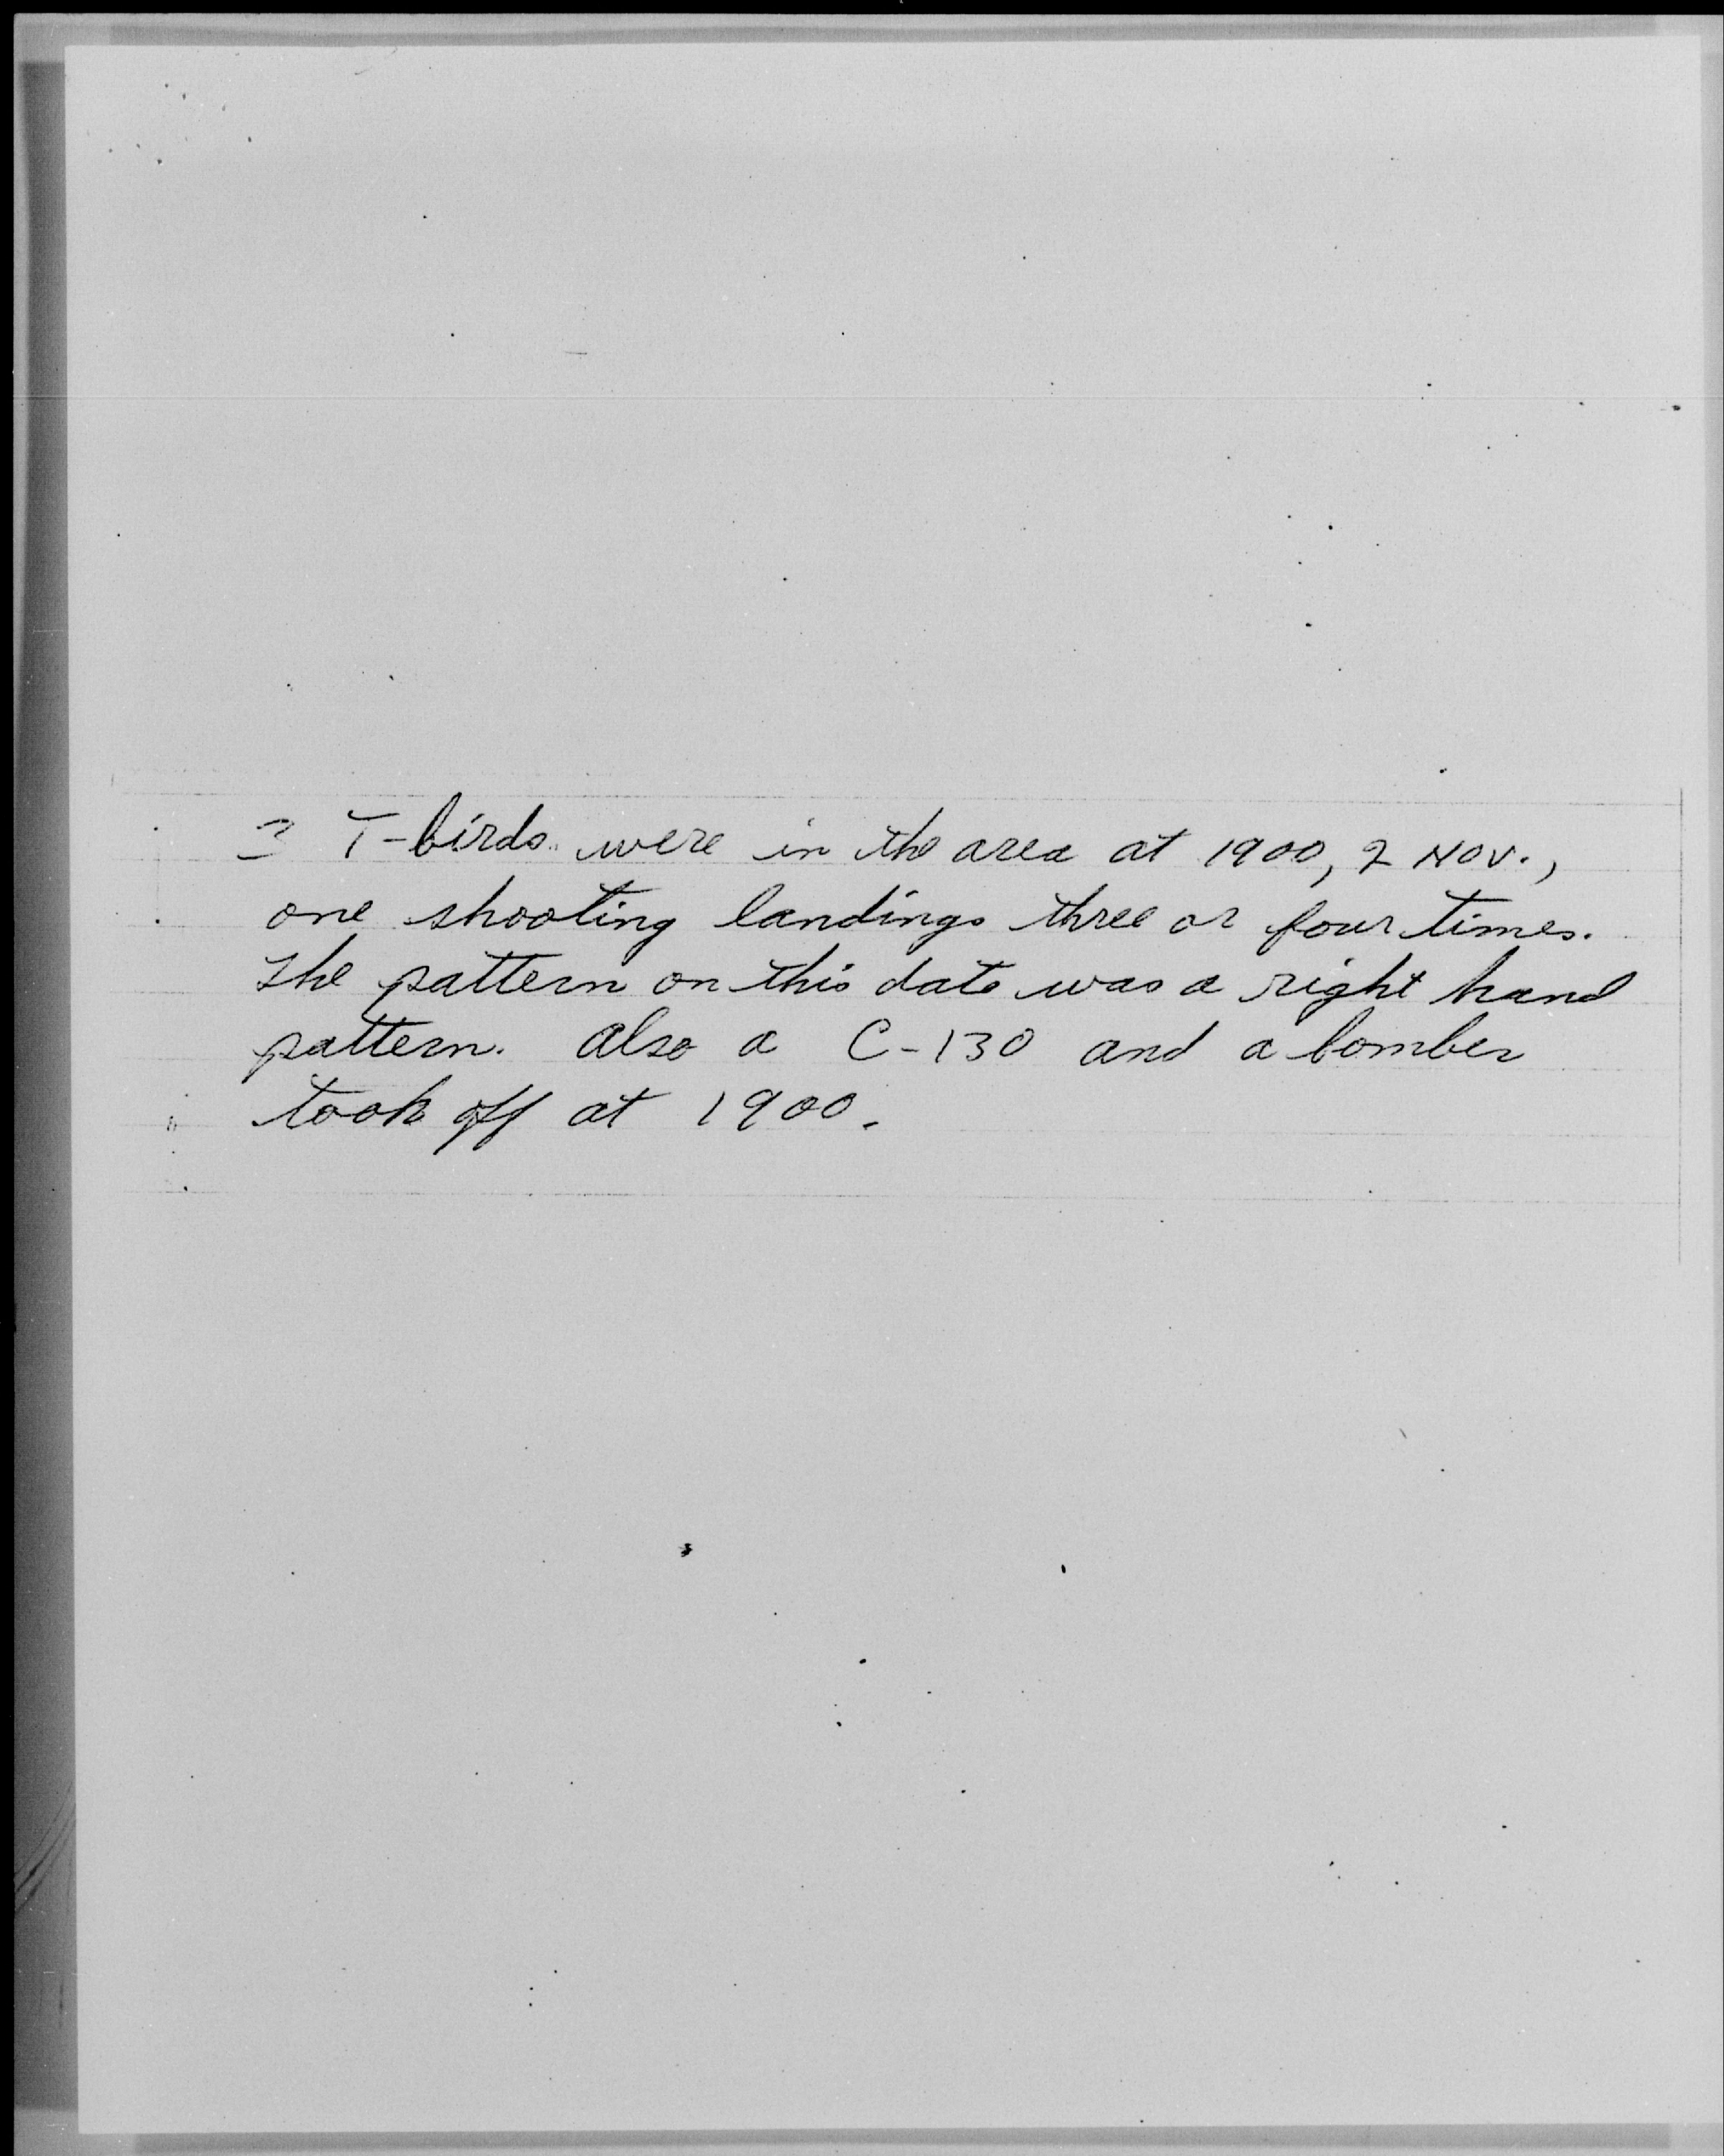 T-birds were in the area at 1900, 2 Nov.,
one shooting landings three or four times.
The pattern on this date was a right hand
pattern. Also a C-130 and a bomber
took off at 1900.